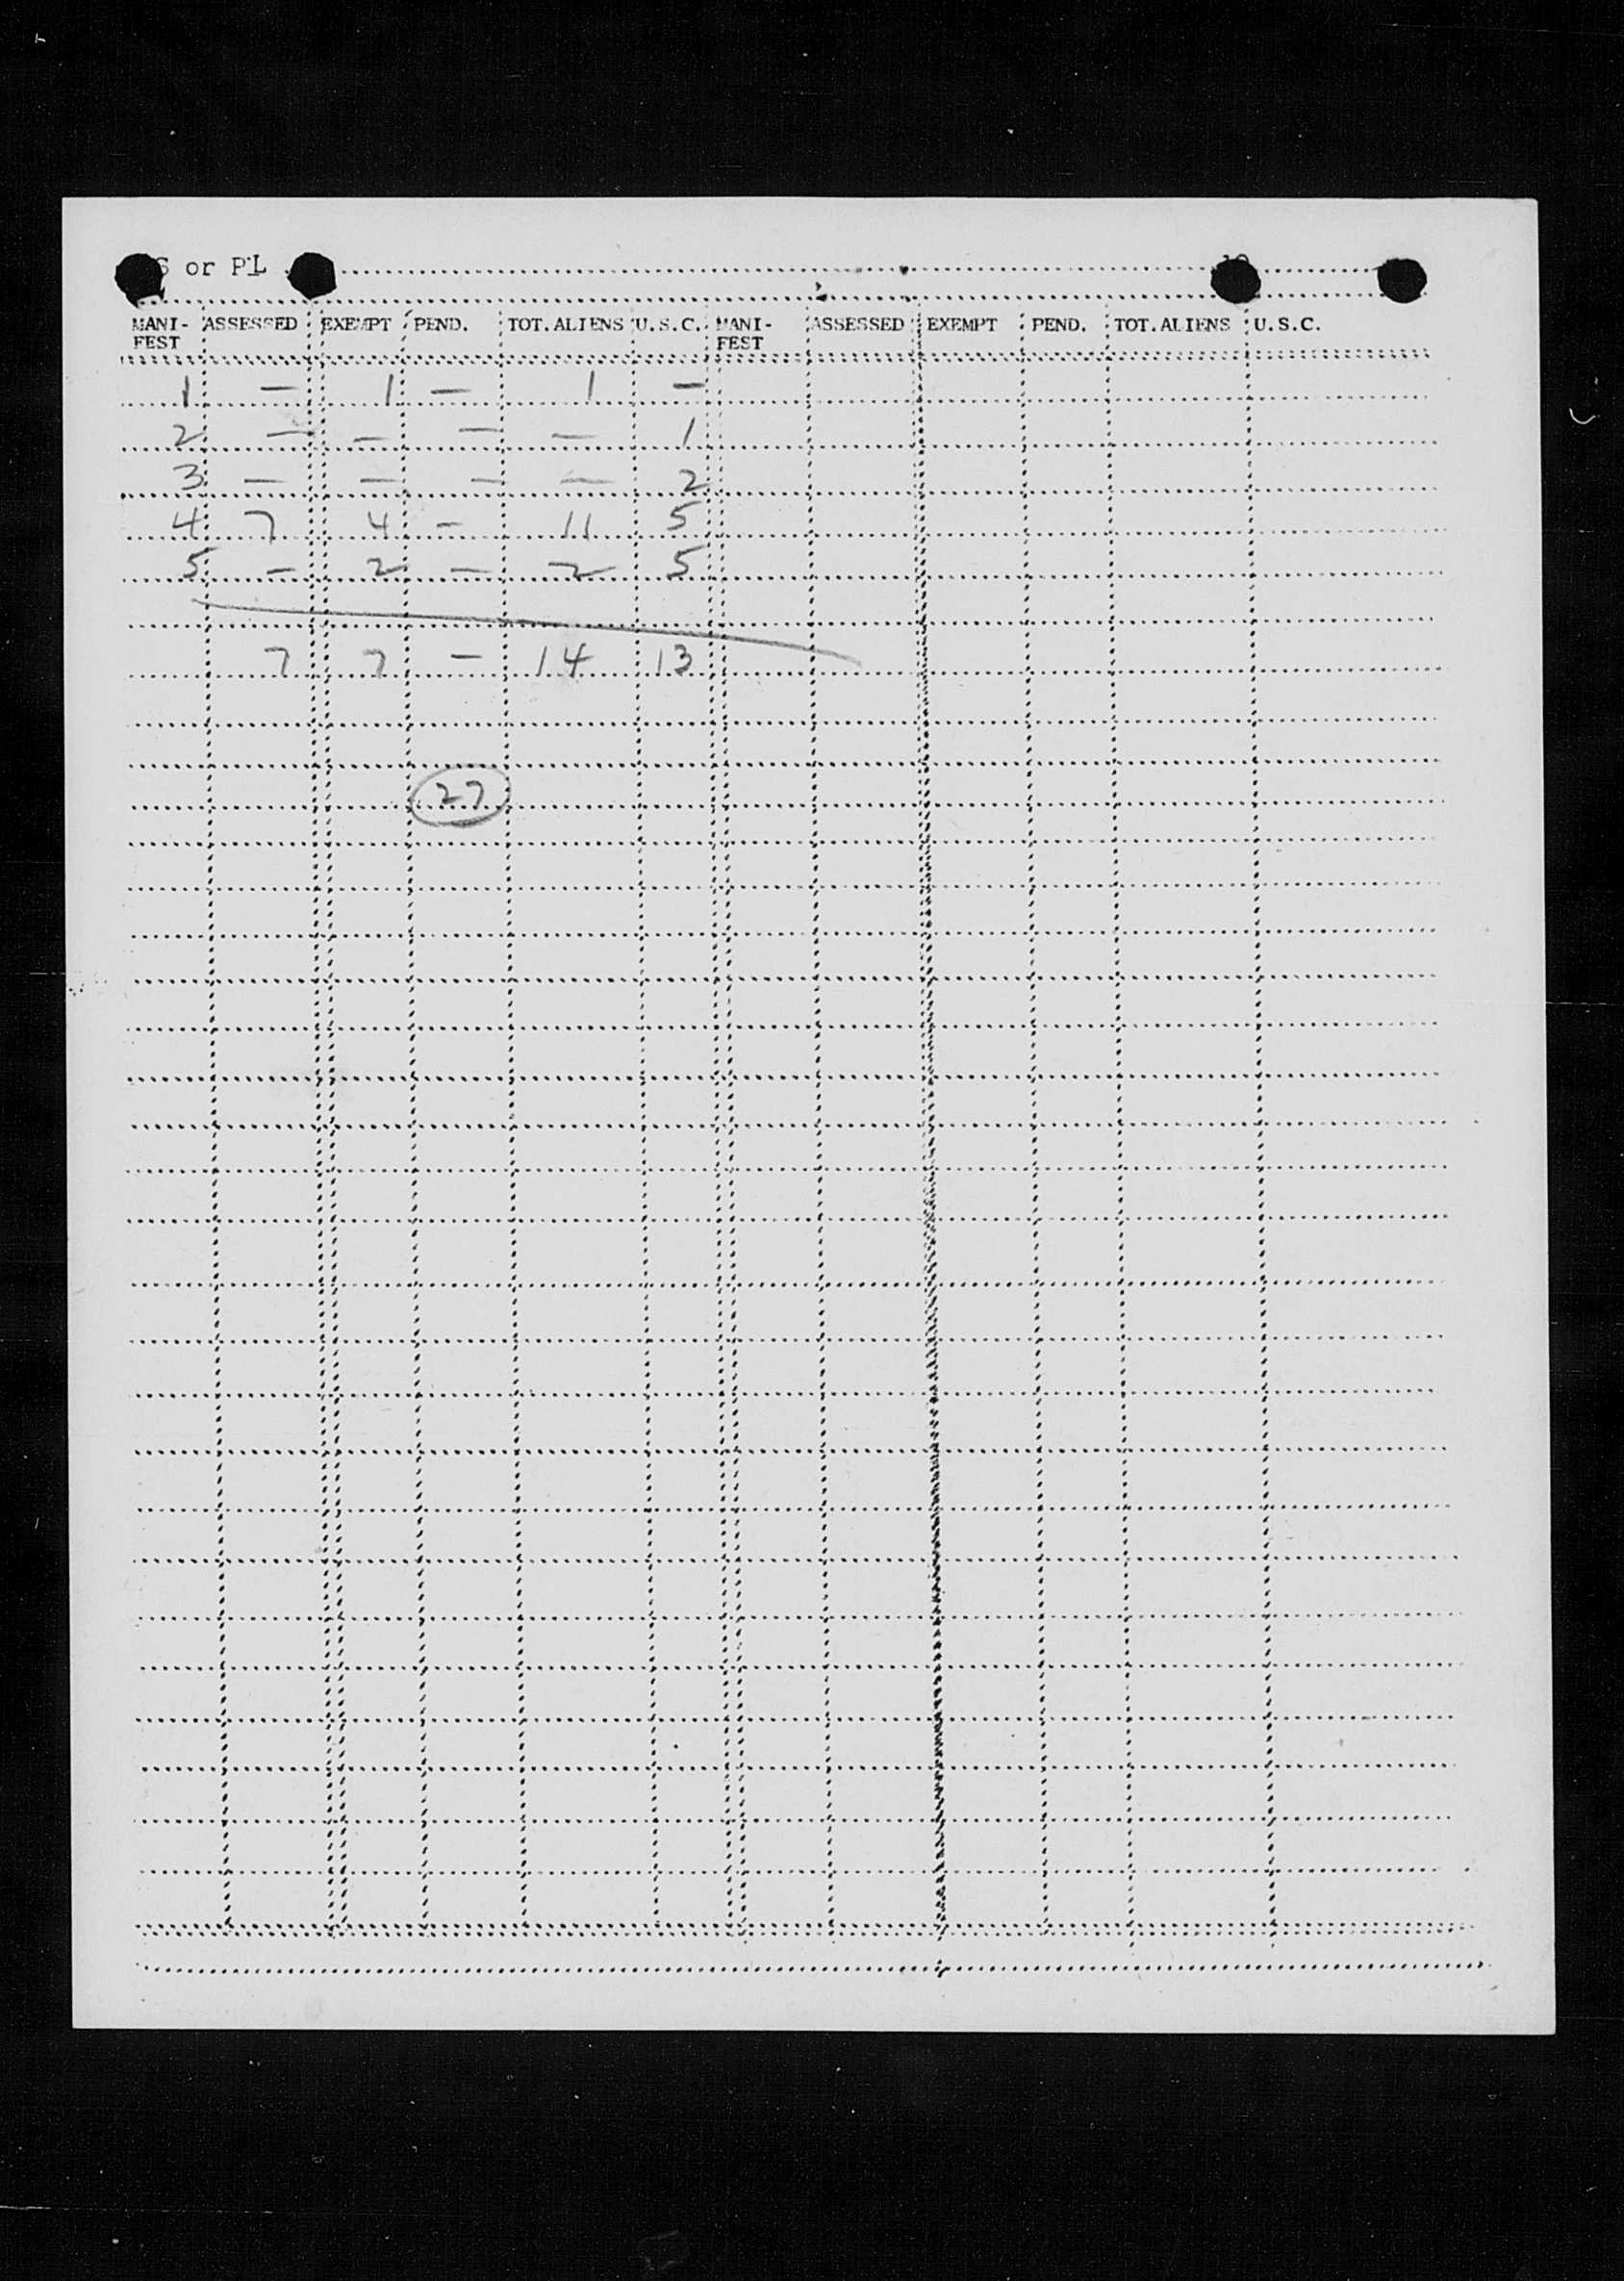 S or PL
MANI- ASSESSED EXEMPT PEND. TOT. ALIENS U.S.C. MANI- ASSESSED EXEMPT PEND. TOT. ALIENS U.S.C.
FEST FEST
1 — 1 — 1 —
2 — — — — 1
3 — — — — 2
4 7 4 — 11 5
5 — 2 — 2 5
7 7 — 14 13
27